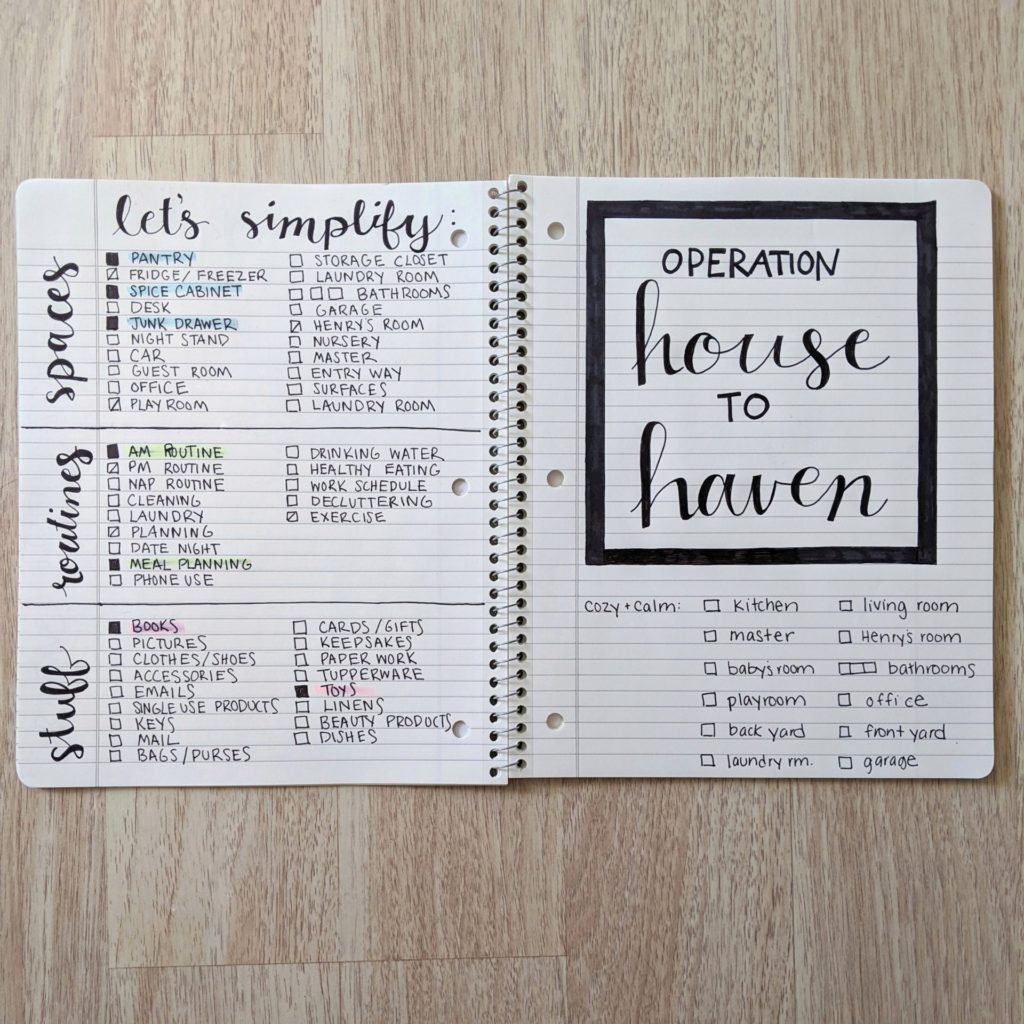 let's simplify:
spaces
■ PANTRY
☑ FRIDGE/FREEZER
■ SPICE CABINET
☐ DESK
■ JUNK DRAWER
☐ NIGHT STAND
☐ CAR
☐ GUEST ROOM
☐ OFFICE
☑ PLAY ROOM
☐ STORAGE CLOSET
☐ LAUNDRY ROOM
☐ ☐ ☐ BATHROOMS
☐ GARAGE
☑ HENRY'S ROOM
☐ NURSERY
☐ MASTER
☐ ENTRY WAY
☐ SURFACES
☐ LAUNDRY ROOM
routines
■ AM ROUTINE
☑ PM ROUTINE
☐ NAP ROUTINE
☐ CLEANING
☐ LAUNDRY
☑ PLANNING
☐ DATE NIGHT
■ MEAL PLANNING
☐ PHONE USE
☐ DRINKING WATER
☐ HEALTHY EATING
☐ WORK SCHEDULE
☐ DECLUTTERING
☑ EXERCISE
stuff
■ BOOKS
☐ PICTURES
☐ CLOTHES/SHOES
☐ ACCESSORIES
☐ EMAILS
☐ SINGLE USE PRODUCTS
☐ KEYS
☐ MAIL
☐ BAGS/PURSES
☐ CARDS/GIFTS
☐ KEEPSAKES
☐ PAPER WORK
☐ TUPPERWARE
■ TOYS
☐ LINENS
☐ BEAUTY PRODUCTS
☐ DISHES
OPERATION
house
TO
haven
cozy + calm:
☐ kitchen
☐ living room
☐ master
☐ Henry's room
☐ baby's room
☐☐☐ bathrooms
☐ playroom
☐ office
☐ back yard
☐ front yard
☐ laundry rm.
☐ garage